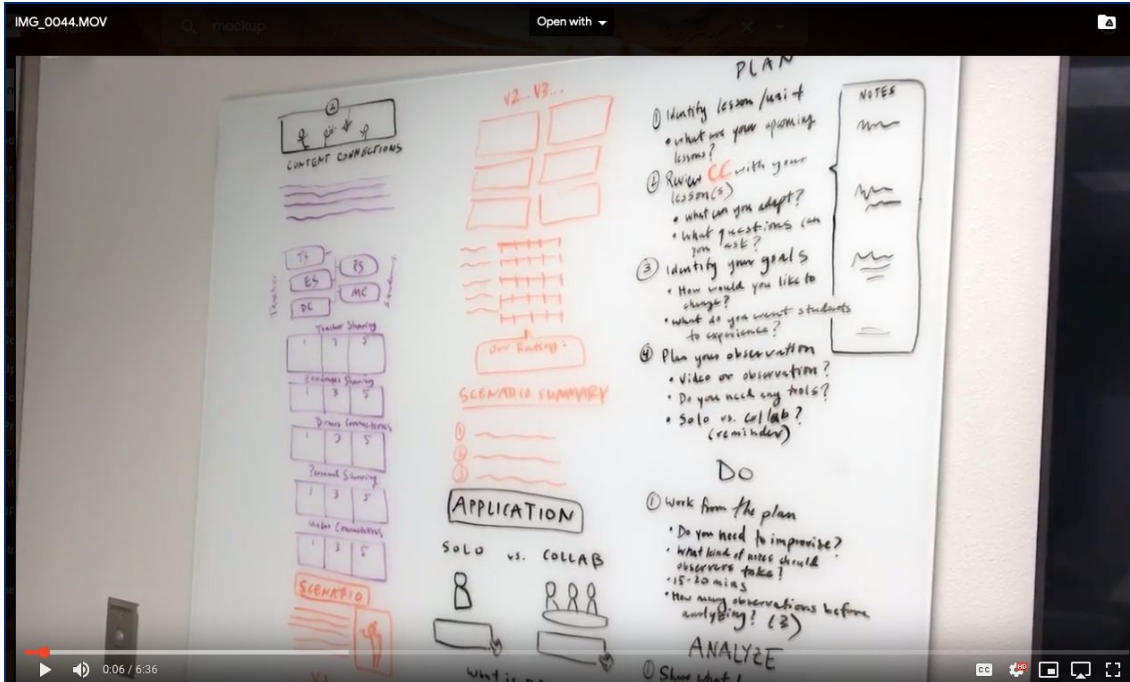 IMG_0044.MOV
mockup
Open with
CONTENT CONNECTIONS
Teacher
TS
ES
DC
PS
MC
Teacher Sharing
1 3 5
Encourages Sharing
1 3 5
Draws Connections
1 3 5
Personal Sharing
1 3 5
Makes Connections
1 3 5
SCENARIO
V1
V2.. V3...
Our Rating:
SCENARIO SUMMARY
1
2
3
APPLICATION
SOLO vs. COLLAB
What is
PLAN
1 Identify lesson/unit
• what are your upcoming
lessons?
2 Review CC with your
lesson(s)
• what can you adapt?
• What questions can
you ask?
3 Identify your goals
• How would you like to
change?
• what do you want students
to experience?
4 Plan your observation
• Video or observation?
• Do you need any tools?
• Solo vs. collab?
(reminder)
DO
1 Work from the plan
• Do you need to improvise?
• What kind of notes should
observers take?
• 15-20 mins
• How many observations before
analyzing? (3)
ANALYZE
1 Show what
NOTES
0:06 / 6:36
CC
HD